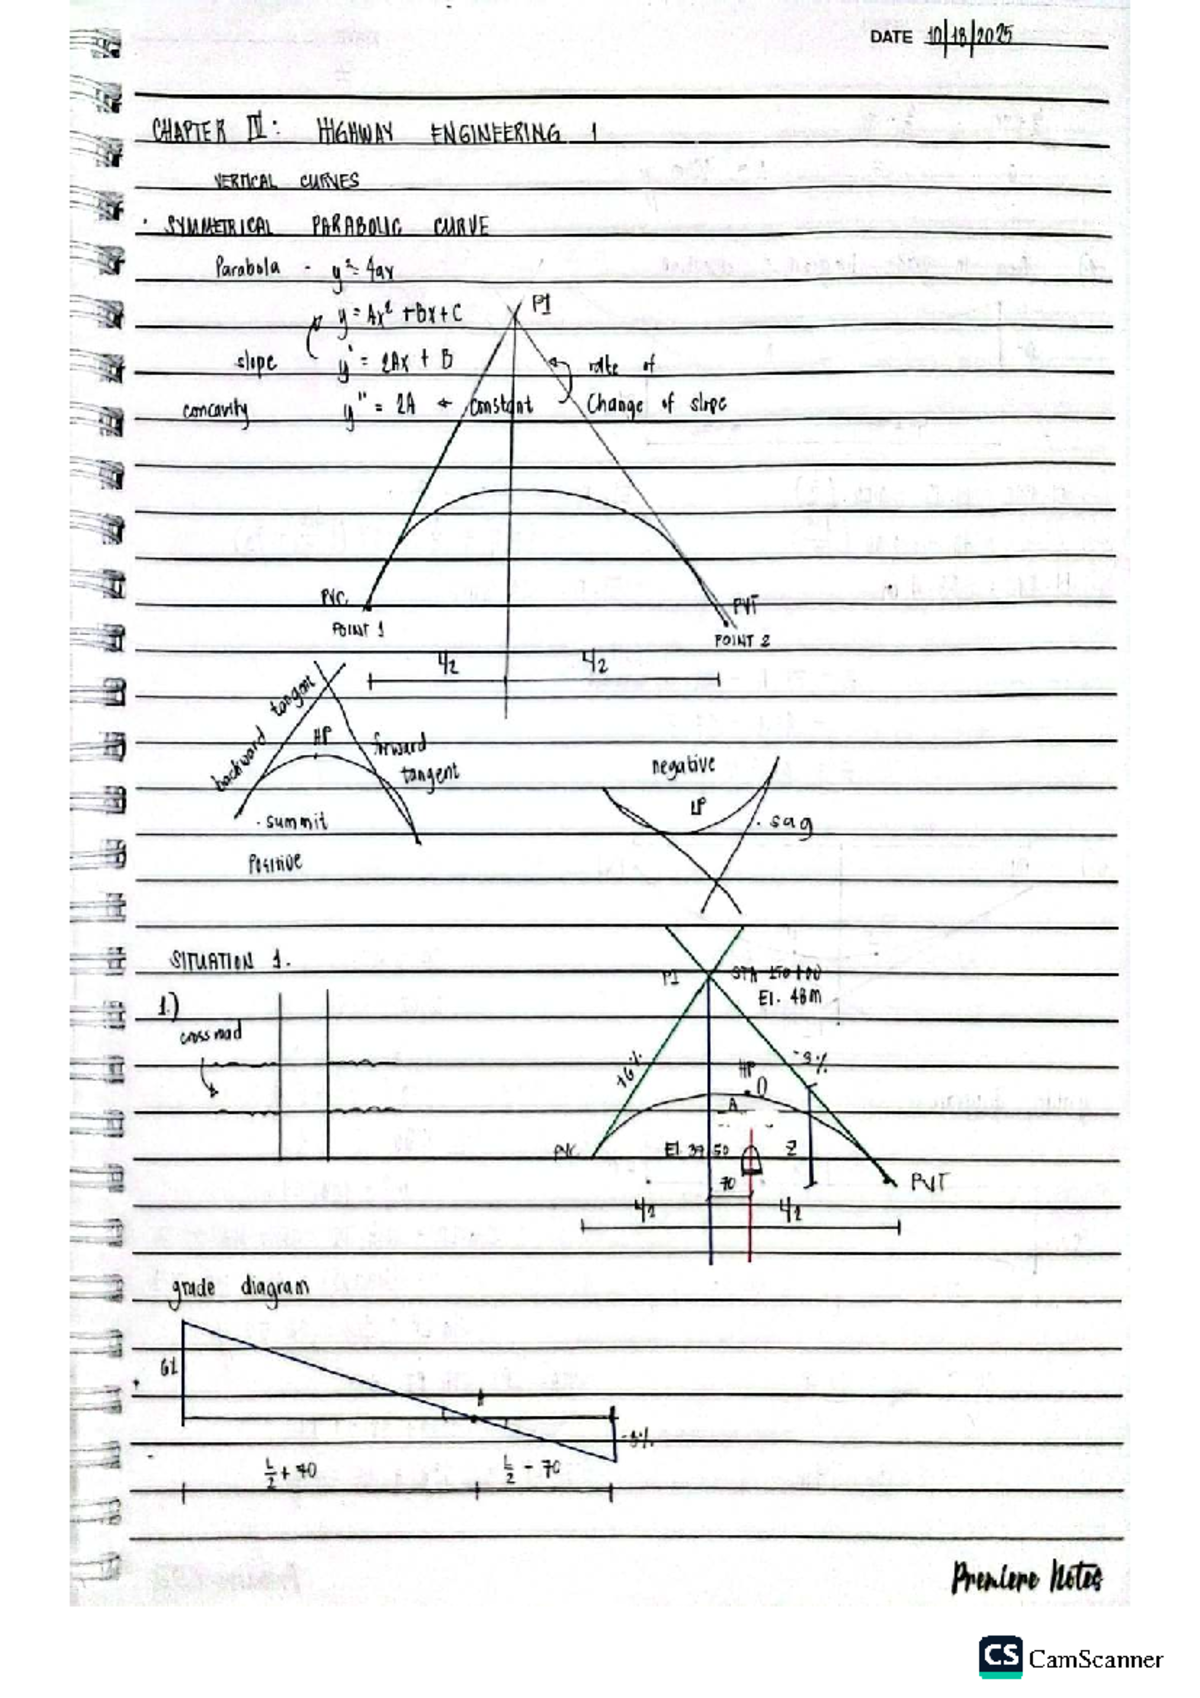 DATE 10/18/2025
CHAPTER IV: HIGHWAY ENGINEERING 1
VERTICAL CURVES
· SYMMETRICAL PARABOLIC CURVE
Parabola - y² = 4ax
y = Ax² + Bx + C
PI
slope y' = 2Ax + B
rate of
concavity y'' = 2A ← constant
Change of slope
PVC
POINT 1
PVT
POINT 2
L/2 L/2
backward tangent
HP
forward
tangent
· summit
Positive
negative
LP
· sag
SITUATION 1.
1.)
cross road
PI
El. 48m
+6%
-3%
HP
A
PVC
Z
PVT
70
L/2 L/2
grade diagram
-3%
L/2 + 70
L/2 - 70
Premiere Notes
CS CamScanner